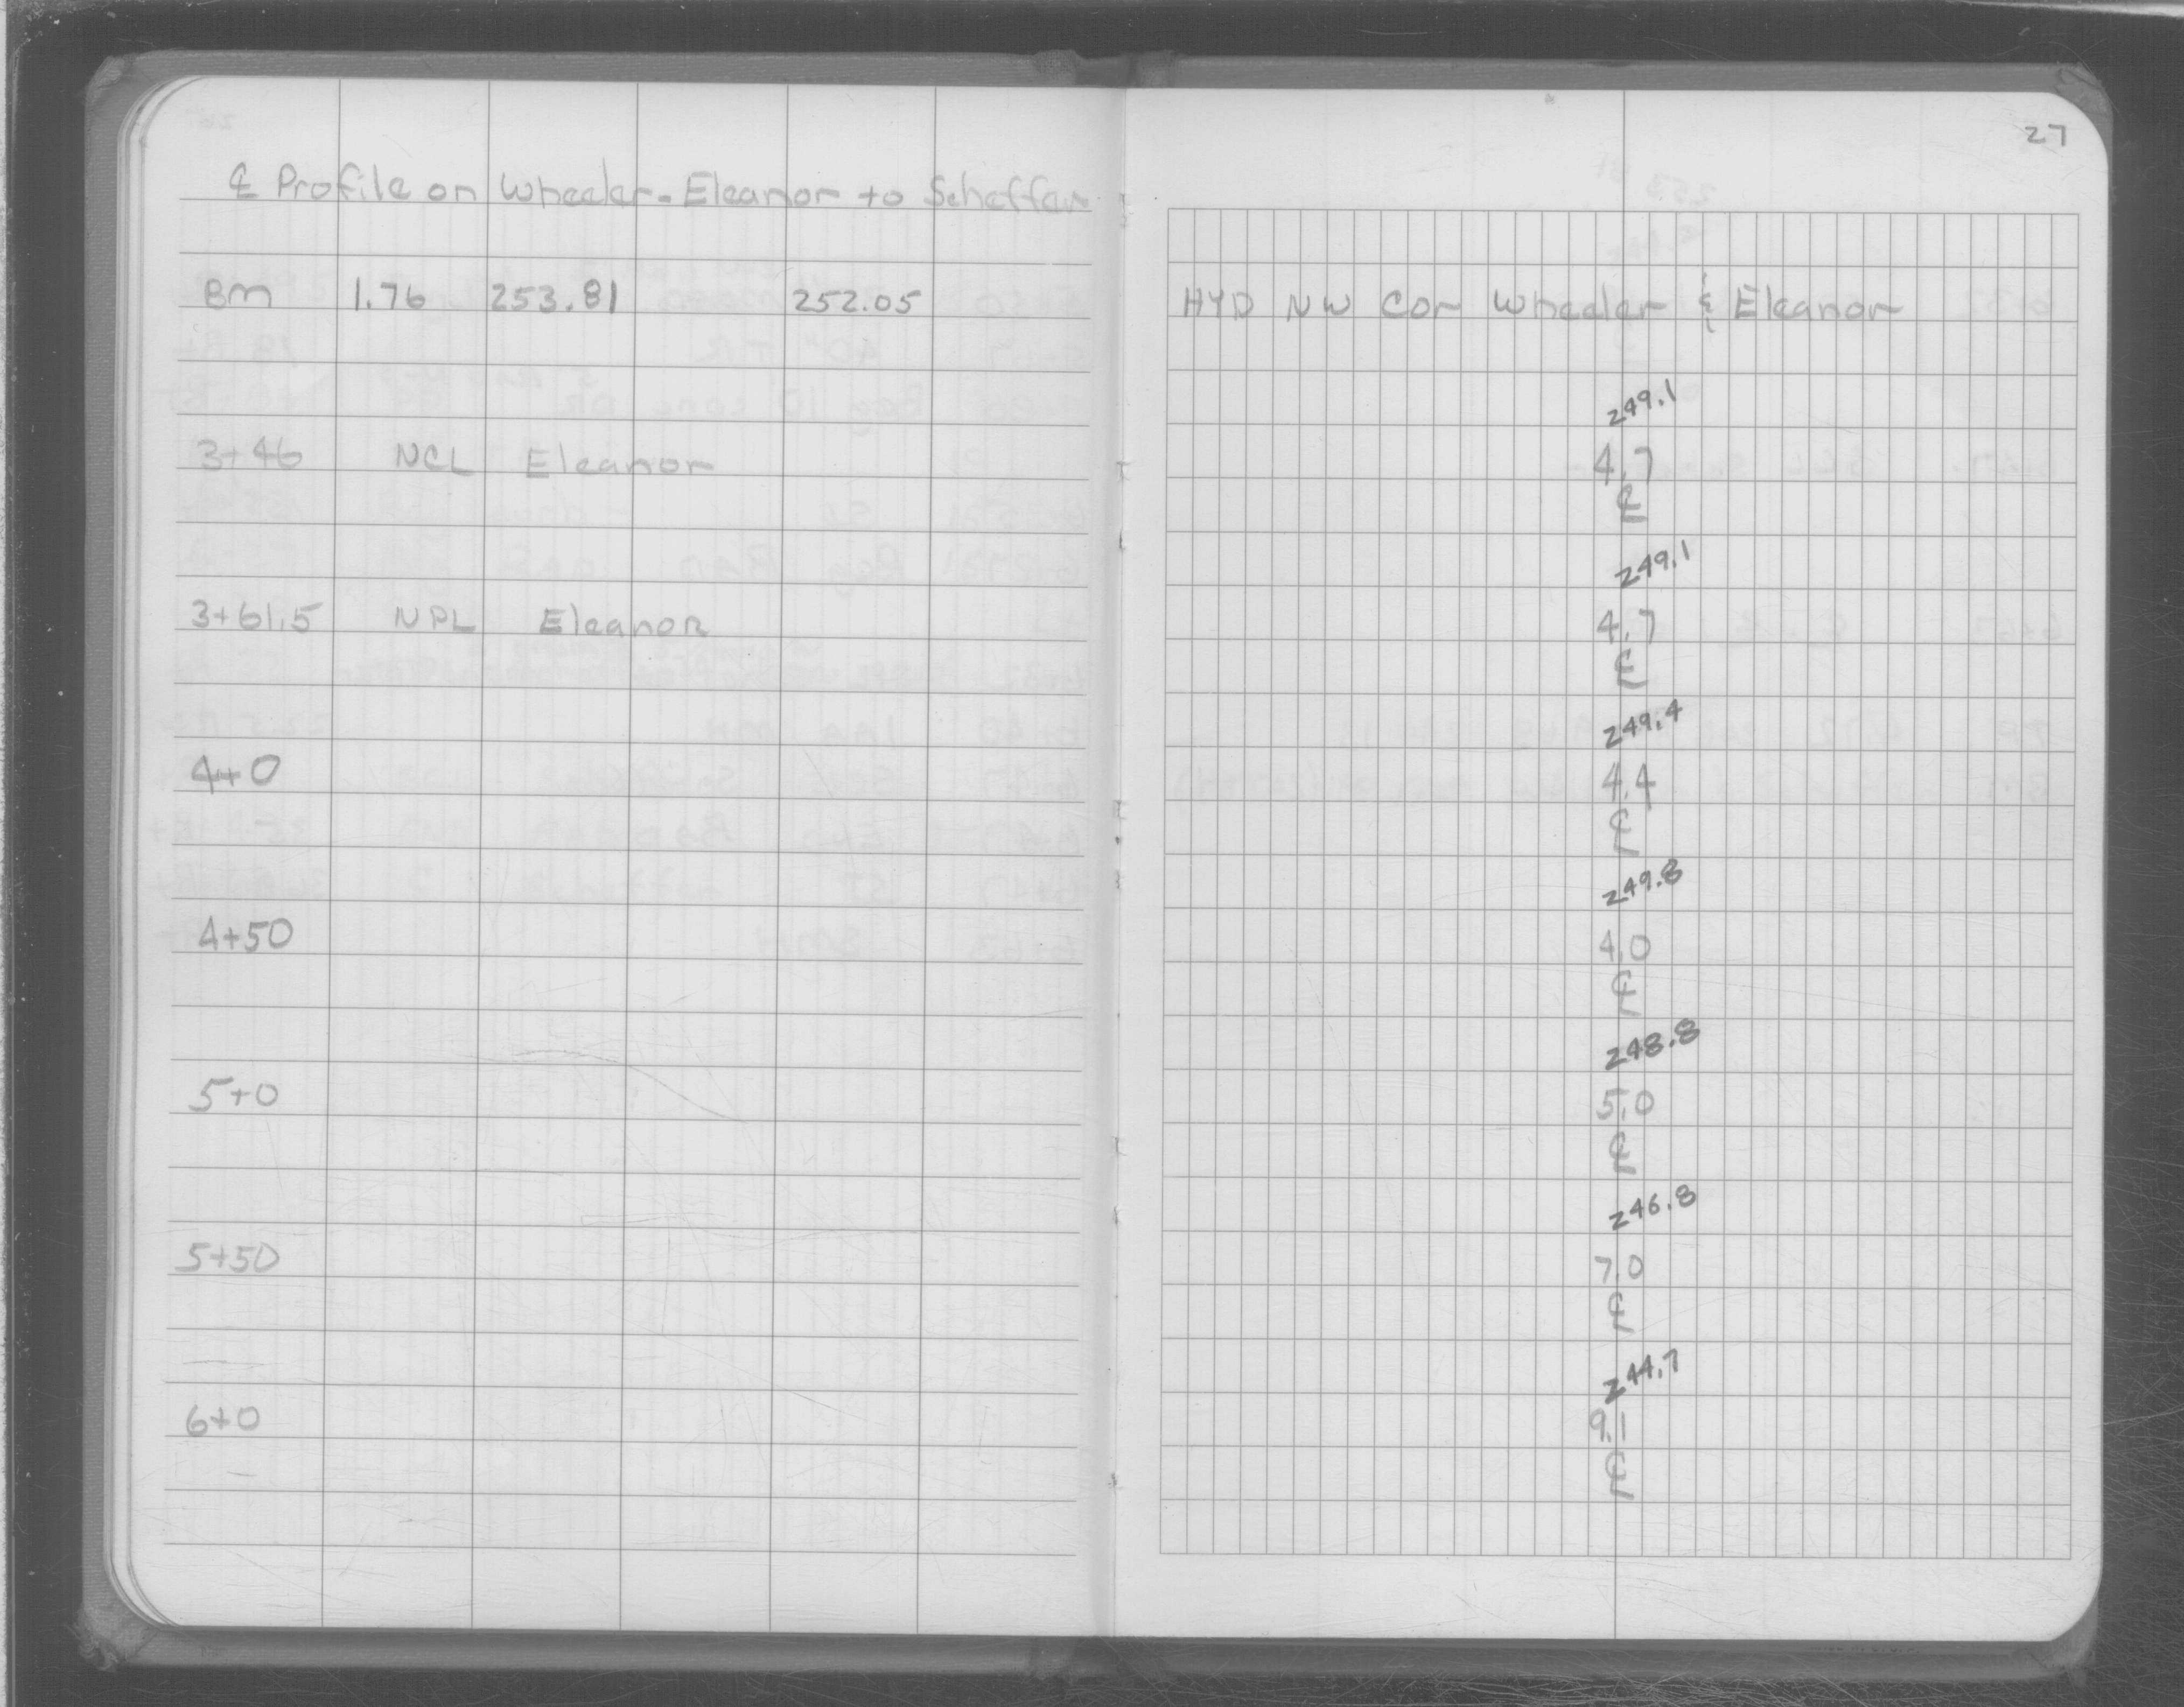 27
℄ Profile on Wheeler - Eleanor to Scheffer
BM 1.76 253.81 252.05 HYD NW Cor Wheeler & Eleanor
249.1
3+46 NCL Eleanor 4.7
℄
249.1
3+61.5 NPL Eleanor 4.7
℄
249.4
4+0 4.4
℄
249.8
4+50 4.0
℄
248.8
5+0 5.0
℄
246.8
5+50 7.0
℄
244.7
6+0 9.1
℄